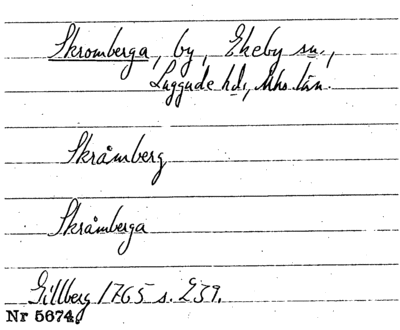 Skromberga, by, Ekeby sn.,
Luggude hd, Mhs län.
Skråmberg
Skråmberga
Gillberg 1765 s. 239.
Nr 5674.